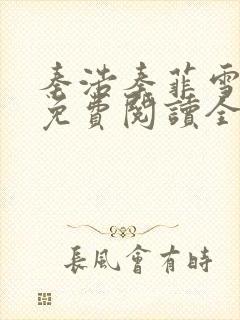 秦浩秦菲雪
免費閱讀全
長風會有時